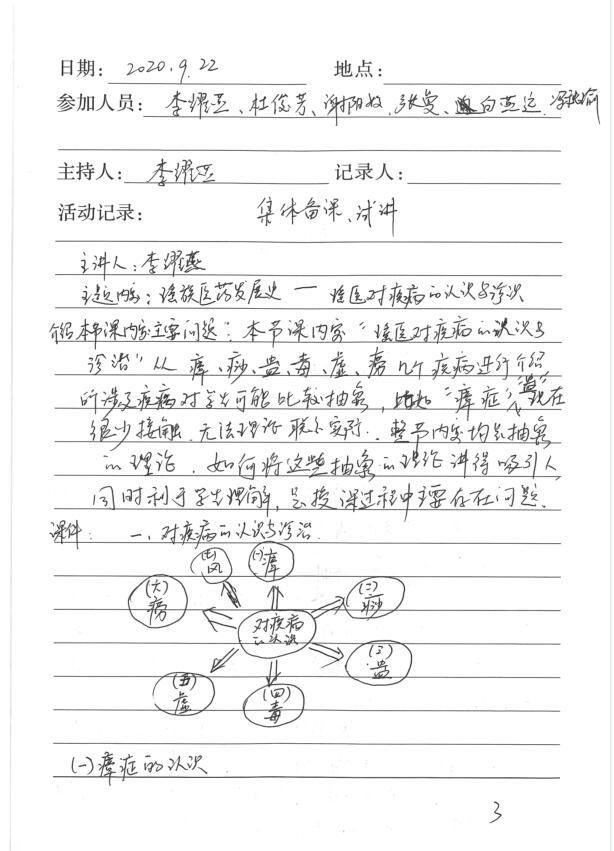 日期: 2020.9.22 地点:
参加人员: 李耀燕、杜俊芳、谢阳姣、张曼、白燕远、
主持人: 李耀燕 记录人:
活动记录: 集体备课、试讲
主讲人：李耀燕
主题内容：瑶族医药发展史 — 瑶医对疾病的认识与诊识
介绍本节课内容主要问题：本节课内容“瑶医对疾病的认识与
诊治”从 瘴、痧、蛊、毒、虚、痨 几个疾病进行介绍
所涉及疾病对学生可能比较抽象，比如“瘴症”、“蛊”现在
很少接触，无法理论联系实际．整节内容均是抽象
的理论．如何将这些抽象的理论讲得吸引人，
同时利于学生理解，是授课过程中主要存在问题．
课件：一、对疾病的认识与诊治．
(七)
风
(一)
瘴
(二)
痧
(六)
痨
对疾病
的认识
(三)
蛊
(五)
虚
(四)
毒
(一)瘴症的认识
3